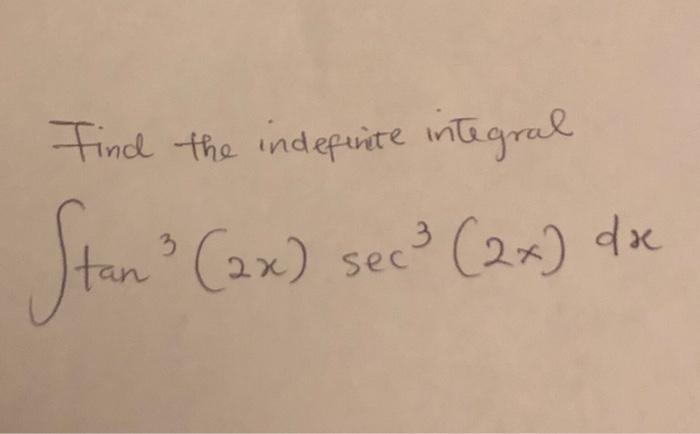 Find the indefinite integral
∫tan³(2x) sec³(2x) dx